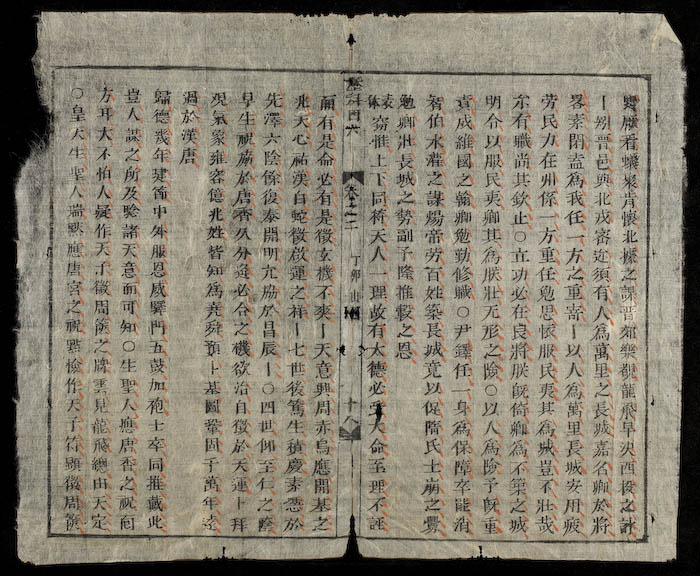 奥雁看蝶衆皆懷北據之謀晋郊樂觀龍飛早決西投之計
一別晋邑與北戎審迩須有人為萬里之長城嘉名卿於將
畧素閑盍為我任一方之重寄一以人為萬里長城安用疲
劳民力在卅係一方重任勉思懷服民夷其為城豈不壯哉
尔有職尚其欽止○立功必在良將朕既倚卿為不築之城
明令以服民夷卿其為朕壯無形之險○以人為險予既重
責成維國之翰卿勉勤修職○尹鐸任一身為保障卒能消
智伯水灌之謀煬帝劳百姓築長城竟以促隋氏土崩之釁
勉卿壯長城之勢副予隆推轂之恩
表体 窃惟上下同符天人一理故有大德必受大命至理不誣
爾有是命必有是徵玄機不爽一天意興周赤烏應開基之
兆天心祐漢白蛇徵啟運之祥一七世後篤生積慶素憑於
先澤六陰係復泰開明允勵於昌辰一○四世仰至仁之隆
早生祝勵於唐香久分是必合之機欲治自徵於天運卜拜
觀氣象雍容億兆姓皆知為堯舜預卜基圖鞏固千萬年迄
過於漢唐
歸德幾年建節中外服恩威驛門五鼓加袍士卒同推戴此
豈人謀之所及驗諸天意而可知○生聖人應唐香之祝何
方耳大不怕人疑作天子徵周篋之牌雲見龍藏總由天定
○皇天生聖人瑞典應唐宮之祝點儉作天子符顯徵周篋
歷科四六
卷之二
丁卯 山
十八